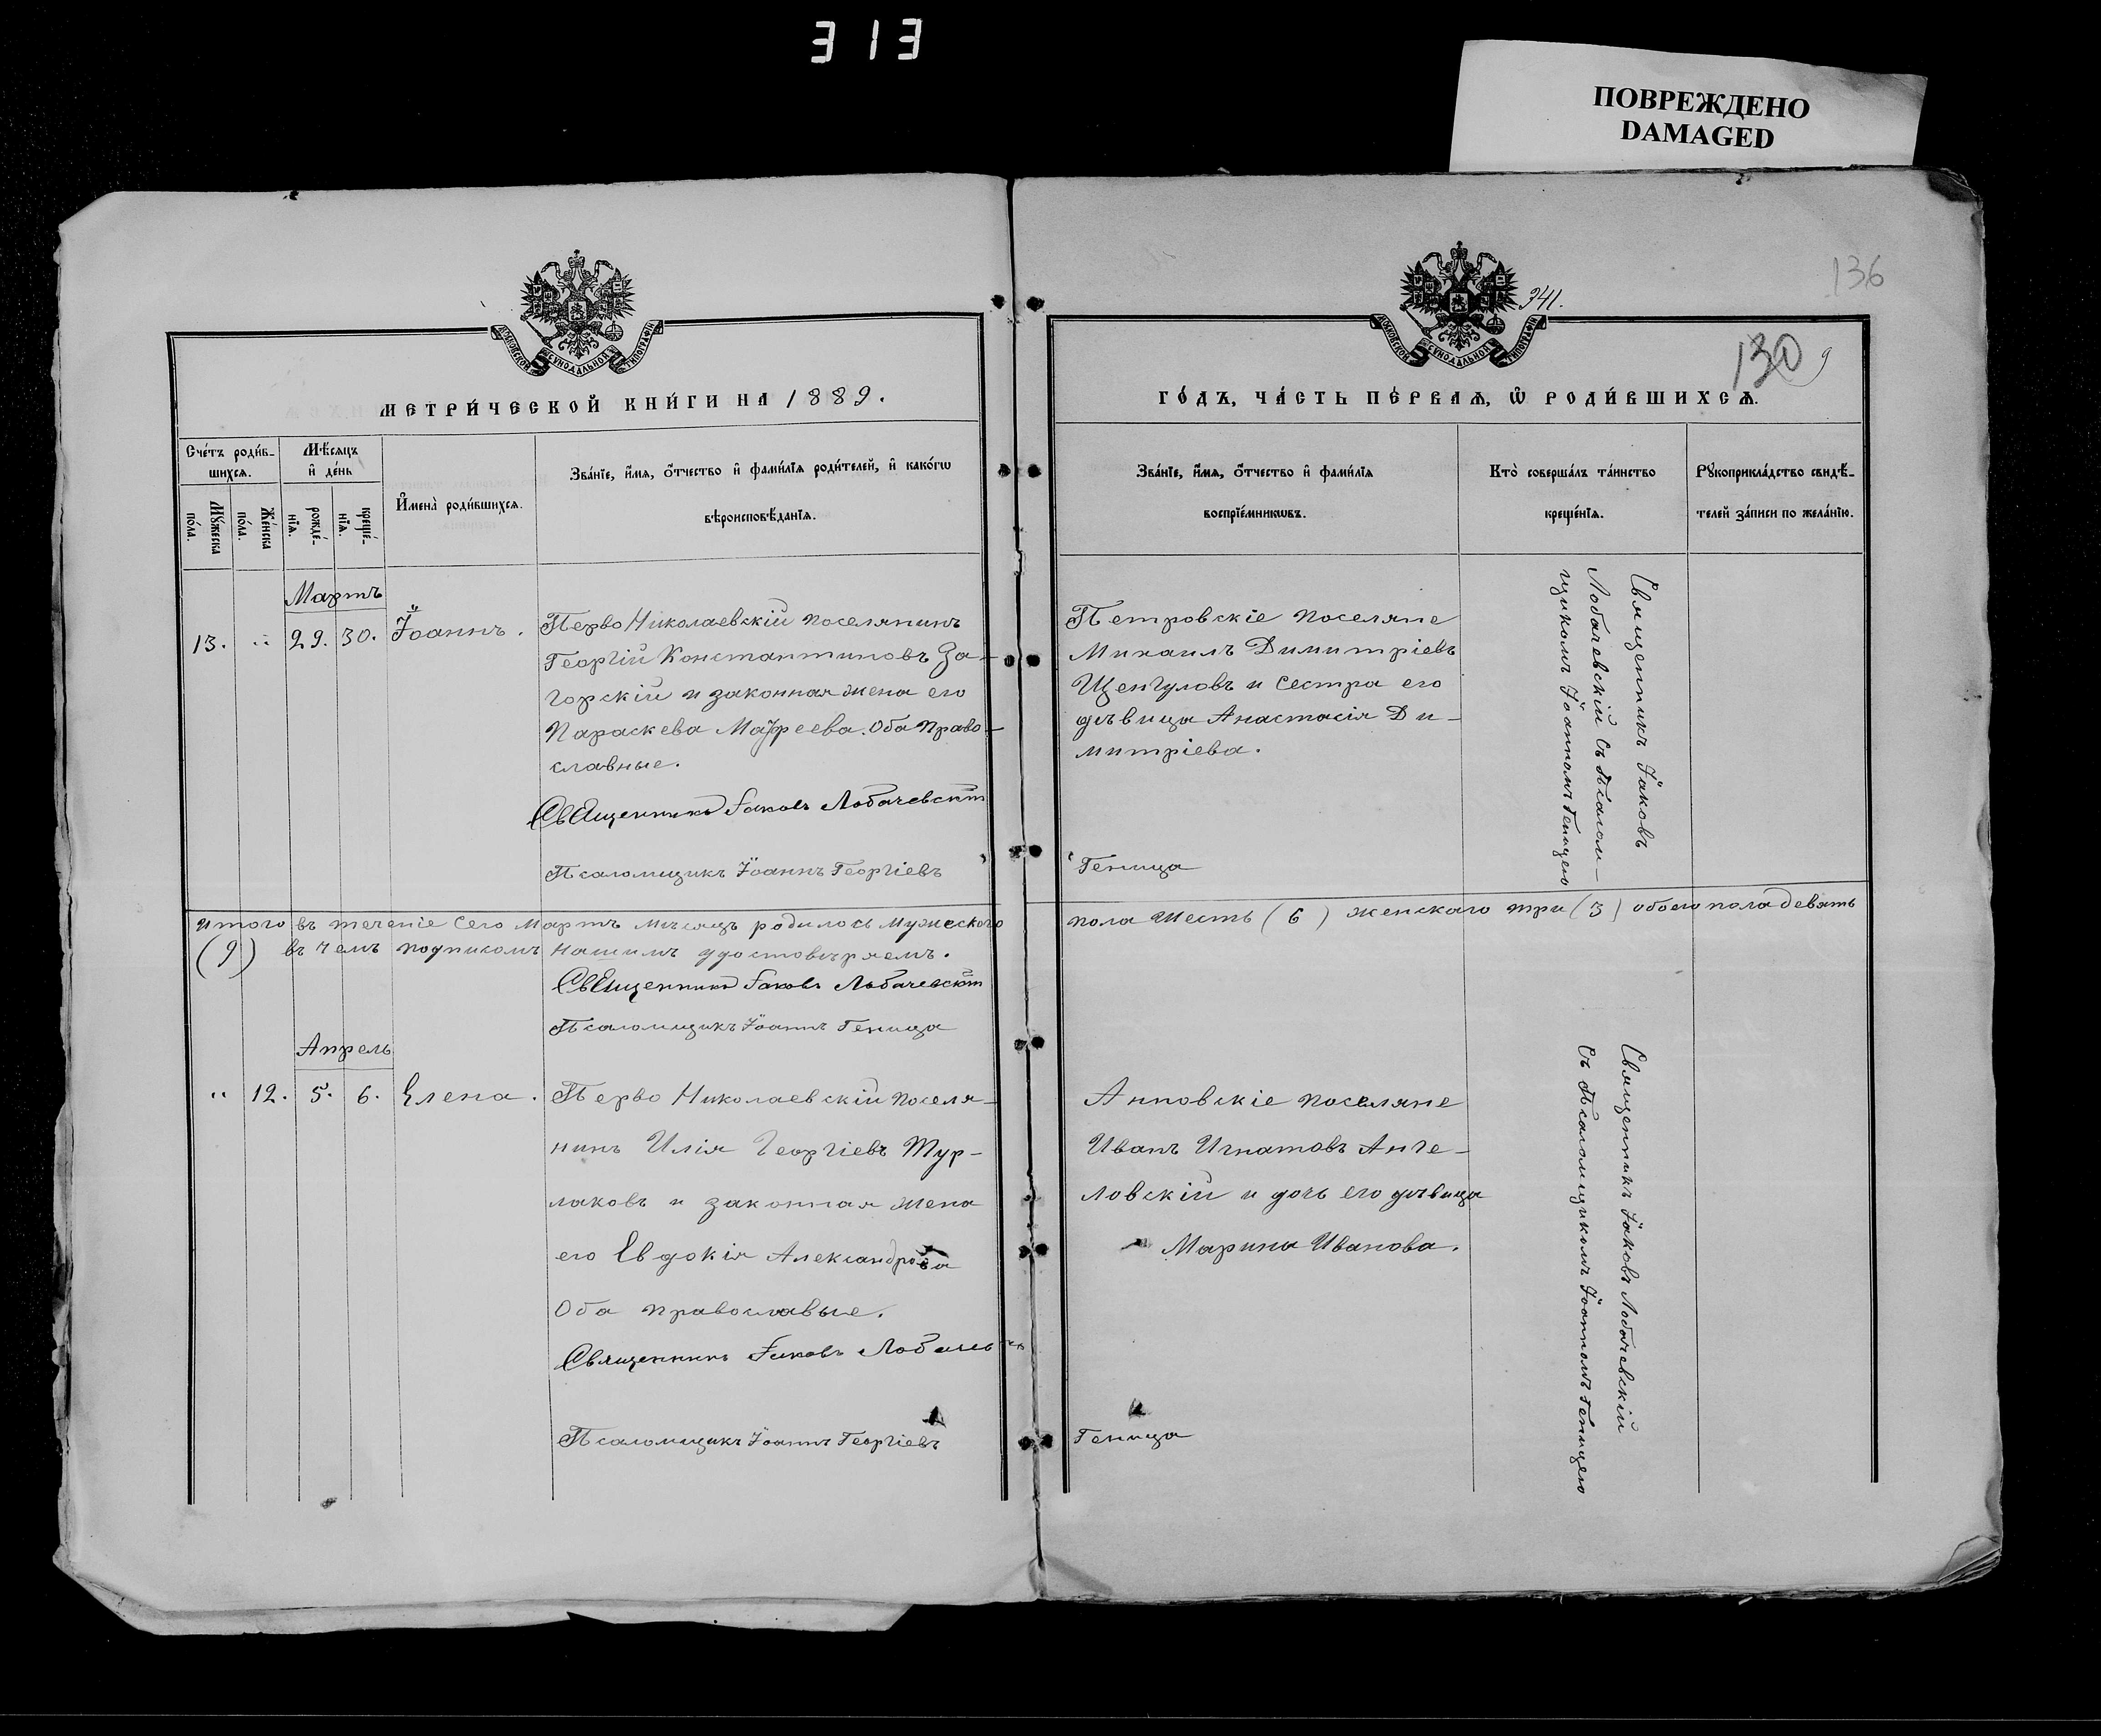 313
ПОВРЕЖДЕНО
DAMAGED
136
341.
130
9
МОСКОВСКОЙ СѴНОДАЛЬНОЙ ТИПОГРАФІИ
МОСКОВСКОЙ СѴНОДАЛЬНОЙ ТИПОГРАФІИ
МЕТРИ́ЧЕСКОЙ КНИ́ГИ НА 1889.
ГО́ДЪ, ЧА́СТЬ ПЕ́РВАѦ, Ѿ РОДИ́ВШИХСѦ.
Сче́тъ роди́в-
шихсѧ.
Мѣ́сѧцъ
и҆ де́нь
Мꙋ́жеска
по́ла.
Же́нска
по́ла.
рожде́-
нїѧ.
креще́-
нїѧ.
И҆мена̀ роди́вшихсѧ.
Зва́нїе, и҆́мѧ, ѻ҆́тчество и҆ фами́лїѧ роди́телей, и҆ како́гѡ
вѣроисповѣ́данїѧ.
Зва́нїе, и҆́мѧ, ѻ҆́тчество и҆ фами́лїѧ
воспрїе́мникѡвъ.
Кто̀ соверша́лъ та́инство
креще́нїѧ.
Рꙋкоприкла́дство свидѣ́-
телей за́писи по жела́нїю.
Мартъ
13. „ 29. 30. Іоаннъ.
Перво Николаевскій поселянинъ
Георгій Константиновъ За-
горскій и законная жена его
Параскева Матфеева. Оба право-
славные.
Священникъ Іаковъ Лобачевскій
Псаломщикъ Іоаннъ Георгіевъ
Петровскіе поселяне
Михаилъ Димитріевъ
Щенгуловъ и сестра его
дѣвица Анастасія Ди-
митріева.
Геница
Священникъ Іаковъ
Лобачевскій съ Псалом-
щикомъ Іоанномъ Геницею
Итого въ теченіе сего Мартъ мѣсяцъ родилось мужескаго
пола шесть (6) женскаго три (3) обоего пола девять
(9) въ чемъ подписомъ нашимъ удостовѣряемъ.
Священникъ Іаковъ Лобачевскій
Псаломщикъ Іоаннъ Геница
Апрель
„ 12. 5. 6. Елена.
Перво Николаевскій поселя-
нинъ Илія Георгіевъ Тур-
лаковъ и законная жена
его Евдокія Александрова
Оба православые.
Священникъ Іаковъ Лобачев
Псаломщикъ Іоаннъ Георгіевъ
Анновскіе поселяне
Иванъ Игнатовъ Анге-
ловскій и дочь его дѣвица
Марина Иванова.
Геница
Священникъ Іаковъ Лобачевскій
съ Псаломщикомъ Іоанномъ Геницею